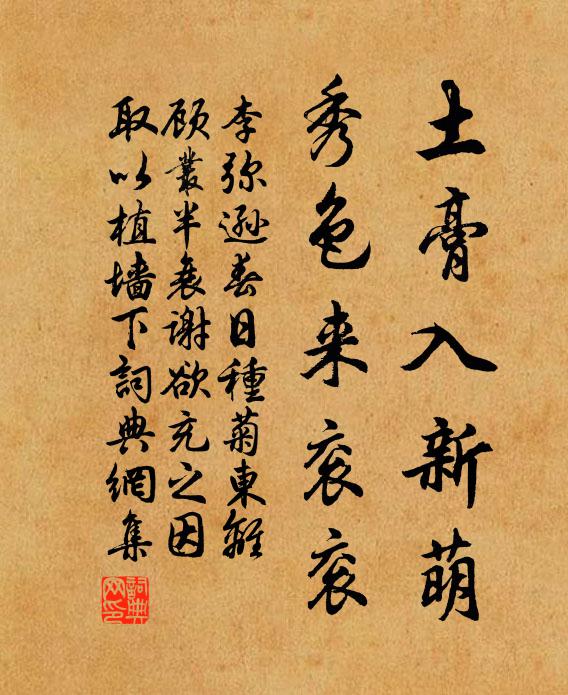 土膏入新萌
秀色来衮衮
李弥逊春日種菊東籬
顾叢半衰谢欲充之因
取以植墙下詞典網集
詞典网印